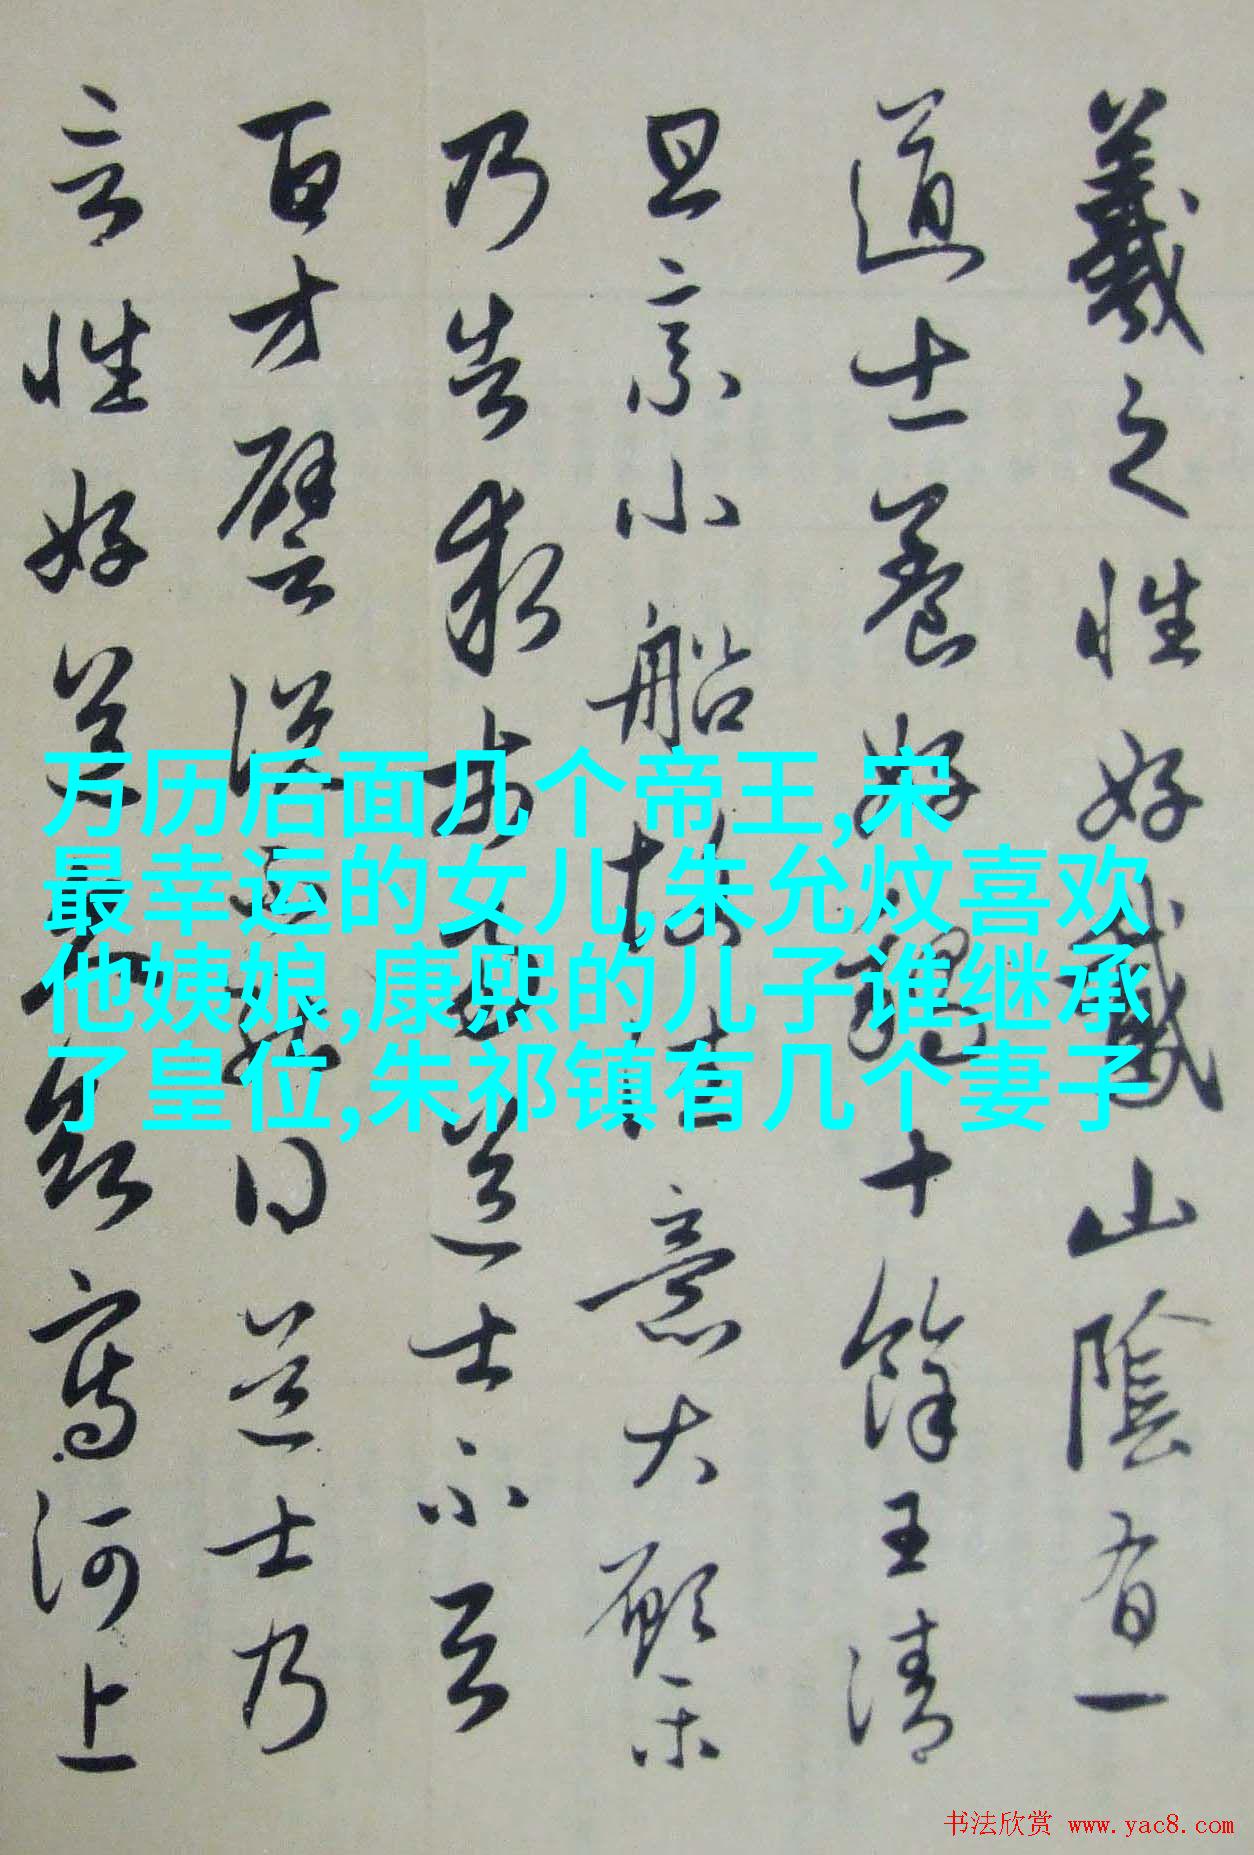 羲之性好鵞山陰有一
道士養好鵞十餘王清
旦乘小船故往意大願樂
乃告求市易道士不与
百方譬说不能得道士乃
言性好道久欲寫河上
万历后面几个帝王,宋
最幸运的女儿,朱允炆喜欢
他姨娘,康熙的儿子谁继承
了皇位,朱祁镇有几个妻子
书法欣赏 www.yac8.com